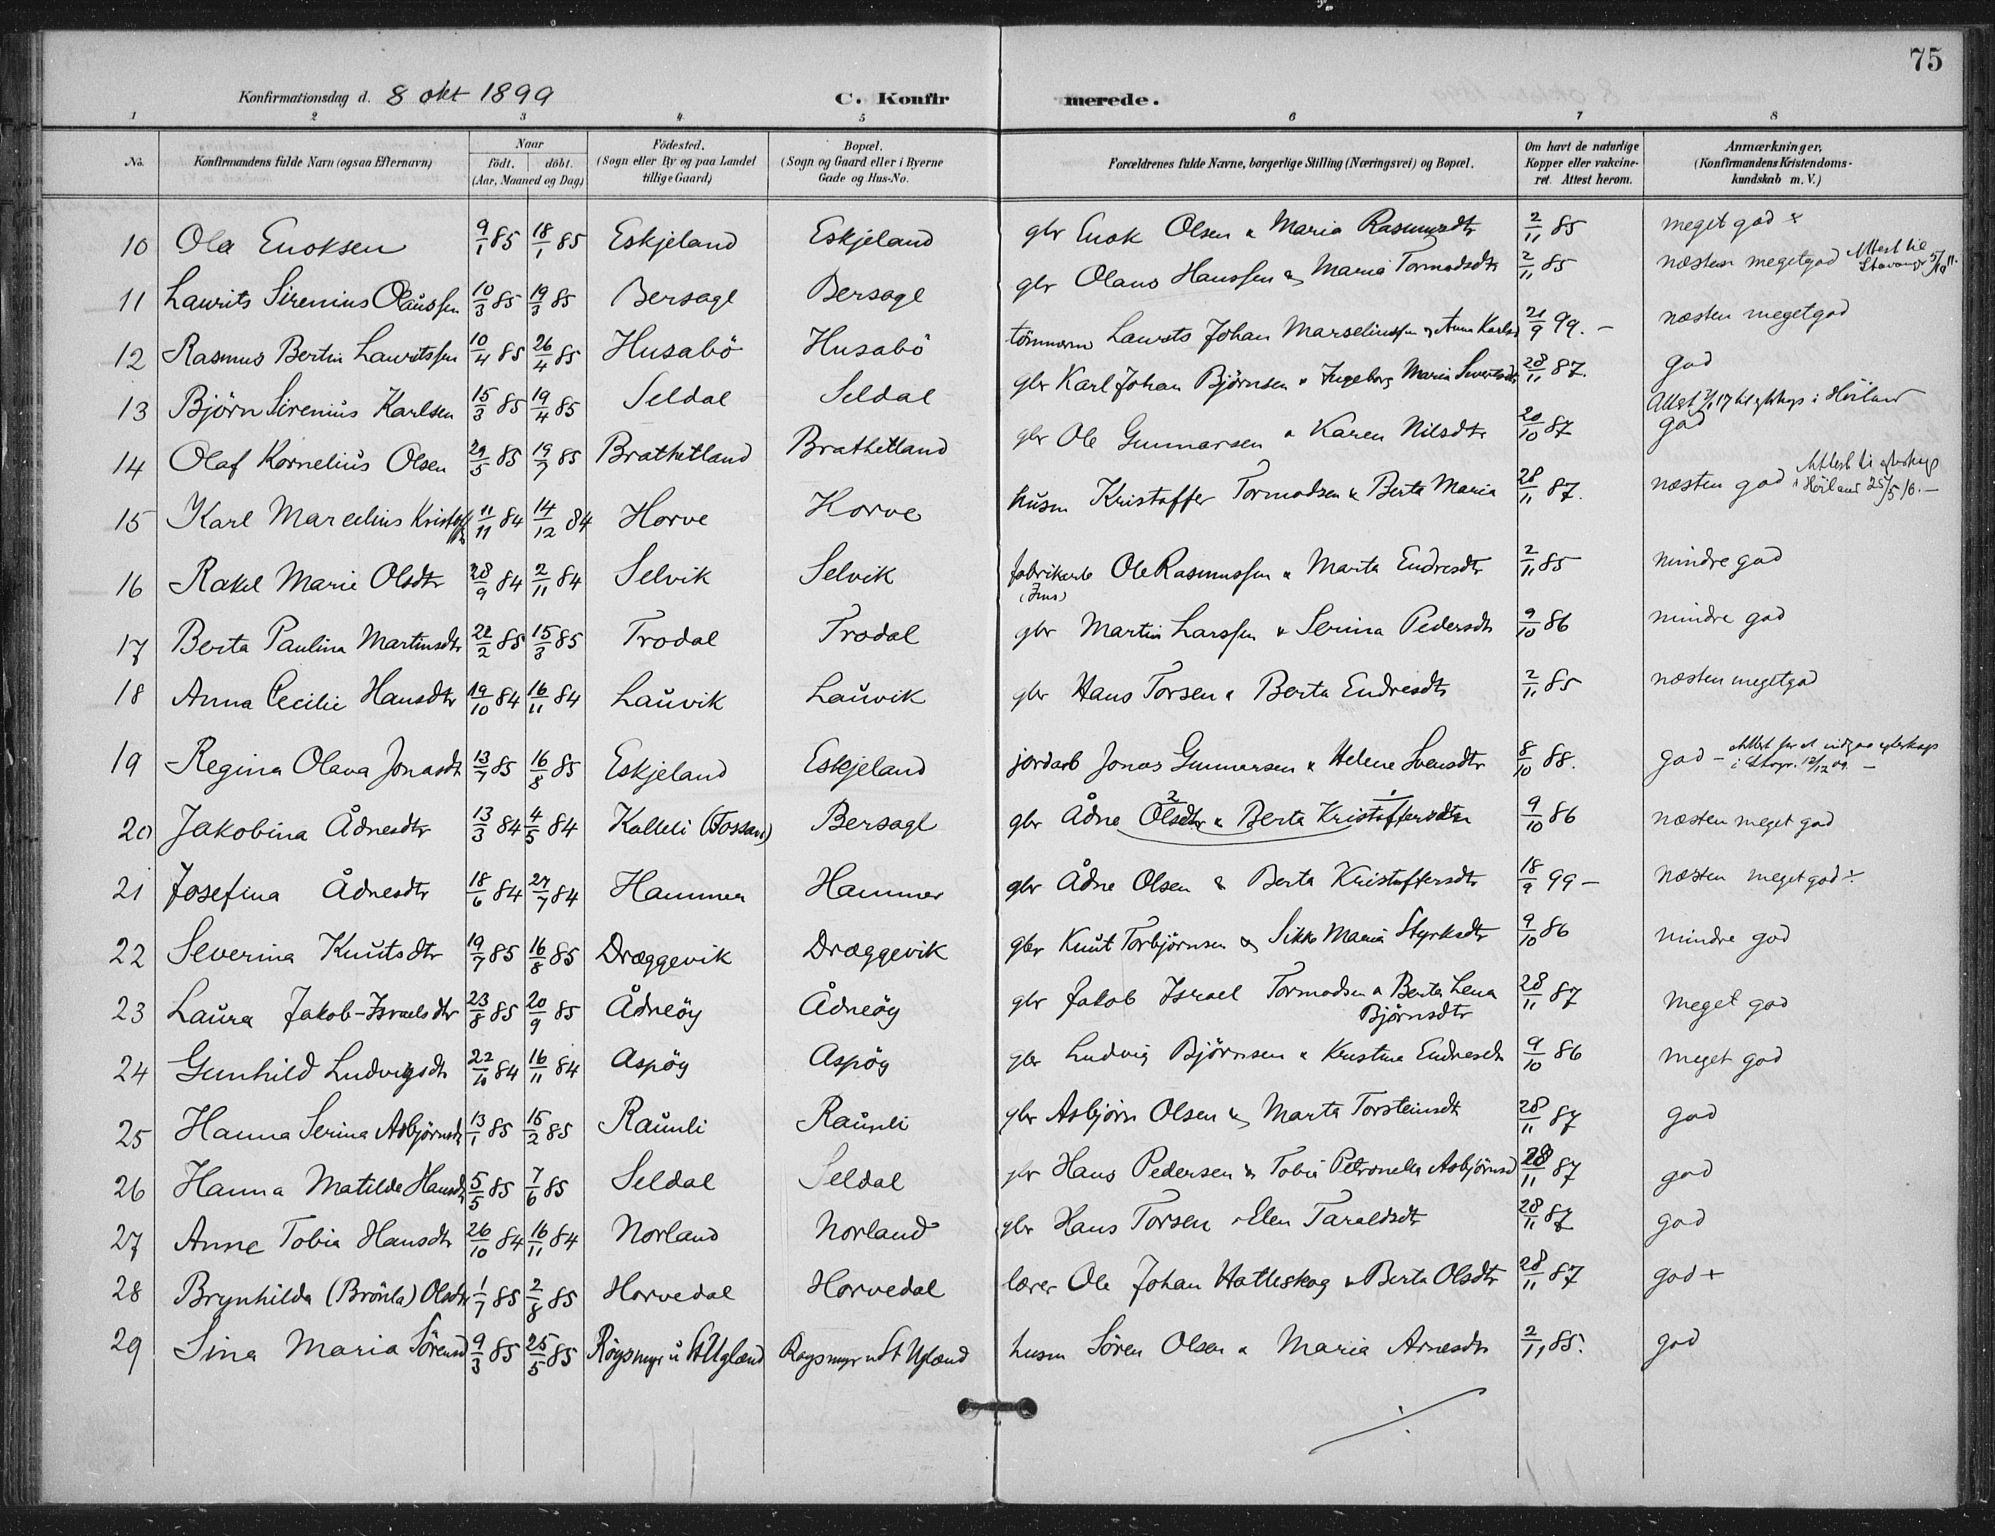 75
Konfirmationsdag d. 8 okt 1899 C. Konfir merede.
1 2 3 4 5 6 7 8
No. Konfirmandens fulde Navn (ogsaa Efternavn) Naar födt. döbt. (Aar, Maaned og Dag) Födested. (Sogn eller By og paa Landet tillige Gaard) Bopæl. (Sogn og Gaard eller i Byerne Gade og Hus-No. Forældrenes fulde Navne, borgerlige Stilling (Næringsvei) og Bopæl. Om havt de naturlige Kopper eller vakcineret. Attest herom. Anmærkninger, (Konfirmandens Kristendomskundskab m. V.)
10 Ola Enoksen 9/1 85 18/1 85 Eskjeland Eskjeland gbr Enok Olsen & Maria Rasmusdtr 2/11 85 meget god +
11 Laurits Sirenius Olaussen 10/3 85 19/3 85 Bersagl Bersagl gbr Olaus Hanssen & Maria Tormodsdtr 2/11 85 næsten megetgod Attest til Stavanger
12 Rasmus Bertin Lauritssen 10/4 85 26/4 85 Husabö Husabö Laurits Johan Marseliussen & Anna Karlsd 21/9 99. – næsten megetgod
13 Björn Sirenius Karlsen 15/3 85 19/4 85 Seldal Seldal gbr Karl Johan Björnsen & Ingeborg Maria 28/11 87. god
14 Olaf Kornelius Olsen 29/5 85 19/7 85 Brathetland Brathetland gbr Ole Gunnarsen & Karen Nilsdtr 20/10 87 Attest til i Høiland god
15 Karl Marcelius Kristoffs 11/11 84 14/12 84 Horve Horve husm Kristoffer Tormodsen & Berta Maria 28/11 87. næsten god Attest til i Høiland 25/5 16. –
16 Rakel Marie Olsdtr 28/9 84 2/11 84 Selvik Selvik fabrikarb Ole Rasmussen & Marta Endresdtr 2/11 85 mindre god
17 Berta Paulina Martinsdtr 22/2 85 15/3 85 Trodal Trodal gbr Martin Larssen & Serina Pedersdtr 9/10 86 mindre god
18 Anna Cecilie Hansdtr 19/10 84 16/11 84 Lauvik Lauvik gbr Hans Torsen & Berta Endresdtr 2/11 85 næsten megetgod
19 Regina Olava Jonasdt 13/7 85 16/8 85 Eskjeland Eskjeland jordarb Jonas Gunnarsen & Helene Svensdtr 8/10 88. god – Attest for at indgaa
20 Jakobina Ådnesdtr 13/3 84 4/5 84 Kalleli (Fossan) Bersagl gbr Ådne Olsdtr & Berta Kristoffersdtr 9/10 86 næsten meget god
21 Josefina Ådnesdtr 18/6 84 27/7 84 Hammer Hammer gbr Ådne Olsen & Berta Kristoffersdtr 18/9 99 – næsten meget god
22 Severina Knutsdtr 19/7 85 16/8 85 Dræggevik Dræggevik gbr Knut Torbjörnsen & Sikke Maria Styrksdtr 9/10 86 mindre god
23 Laura Jakob-Israelsdtr 23/8 85 20/9 85 Ådneöy Ådneöy gbr Jakob Israel Tormodsen & Berta Lena Björnsdtr 28/11 87 meget god
24 Gunhild Ludvigsdtr 22/10 84 16/11 84 Aspöy Aspöy gbr Ludvig Björnsen & Kristina Endresdt 9/10 86 meget god
25 Hanna Serina Asbjörnsdt 13/1 85 15/2 85 Raunli Raunli gbr Asbjörn Olsen & Marta Torsteinsdt 28/11 87 god
26 Hanna Matilda Hansdt 5/5 85 7/6 85 Seldal Seldal gbr Hans Pedersen & Tobia Petronella Asbjörnsd 28/11 87 god
27 Anne Tobia Hansdtr 26/10 84 16/11 84 Norland Norland gbr Hans Torsen & Elen Taraldsdt 28/11 87 god
28 Brynhilda (Brönla) Olsdtr 1/7 85 2/8 85 Horvedal Horvedal lærer Ole Johan Hatleskog & Berta Olsdtr 28/11 87 god +
29 Sina Maria Sörensd 9/3 85 25/5 85 Röysmyr u St Ugland Röysmyr u St Ugland husm Sören Olsen & Maria Arnesdtr 2/11 85. god